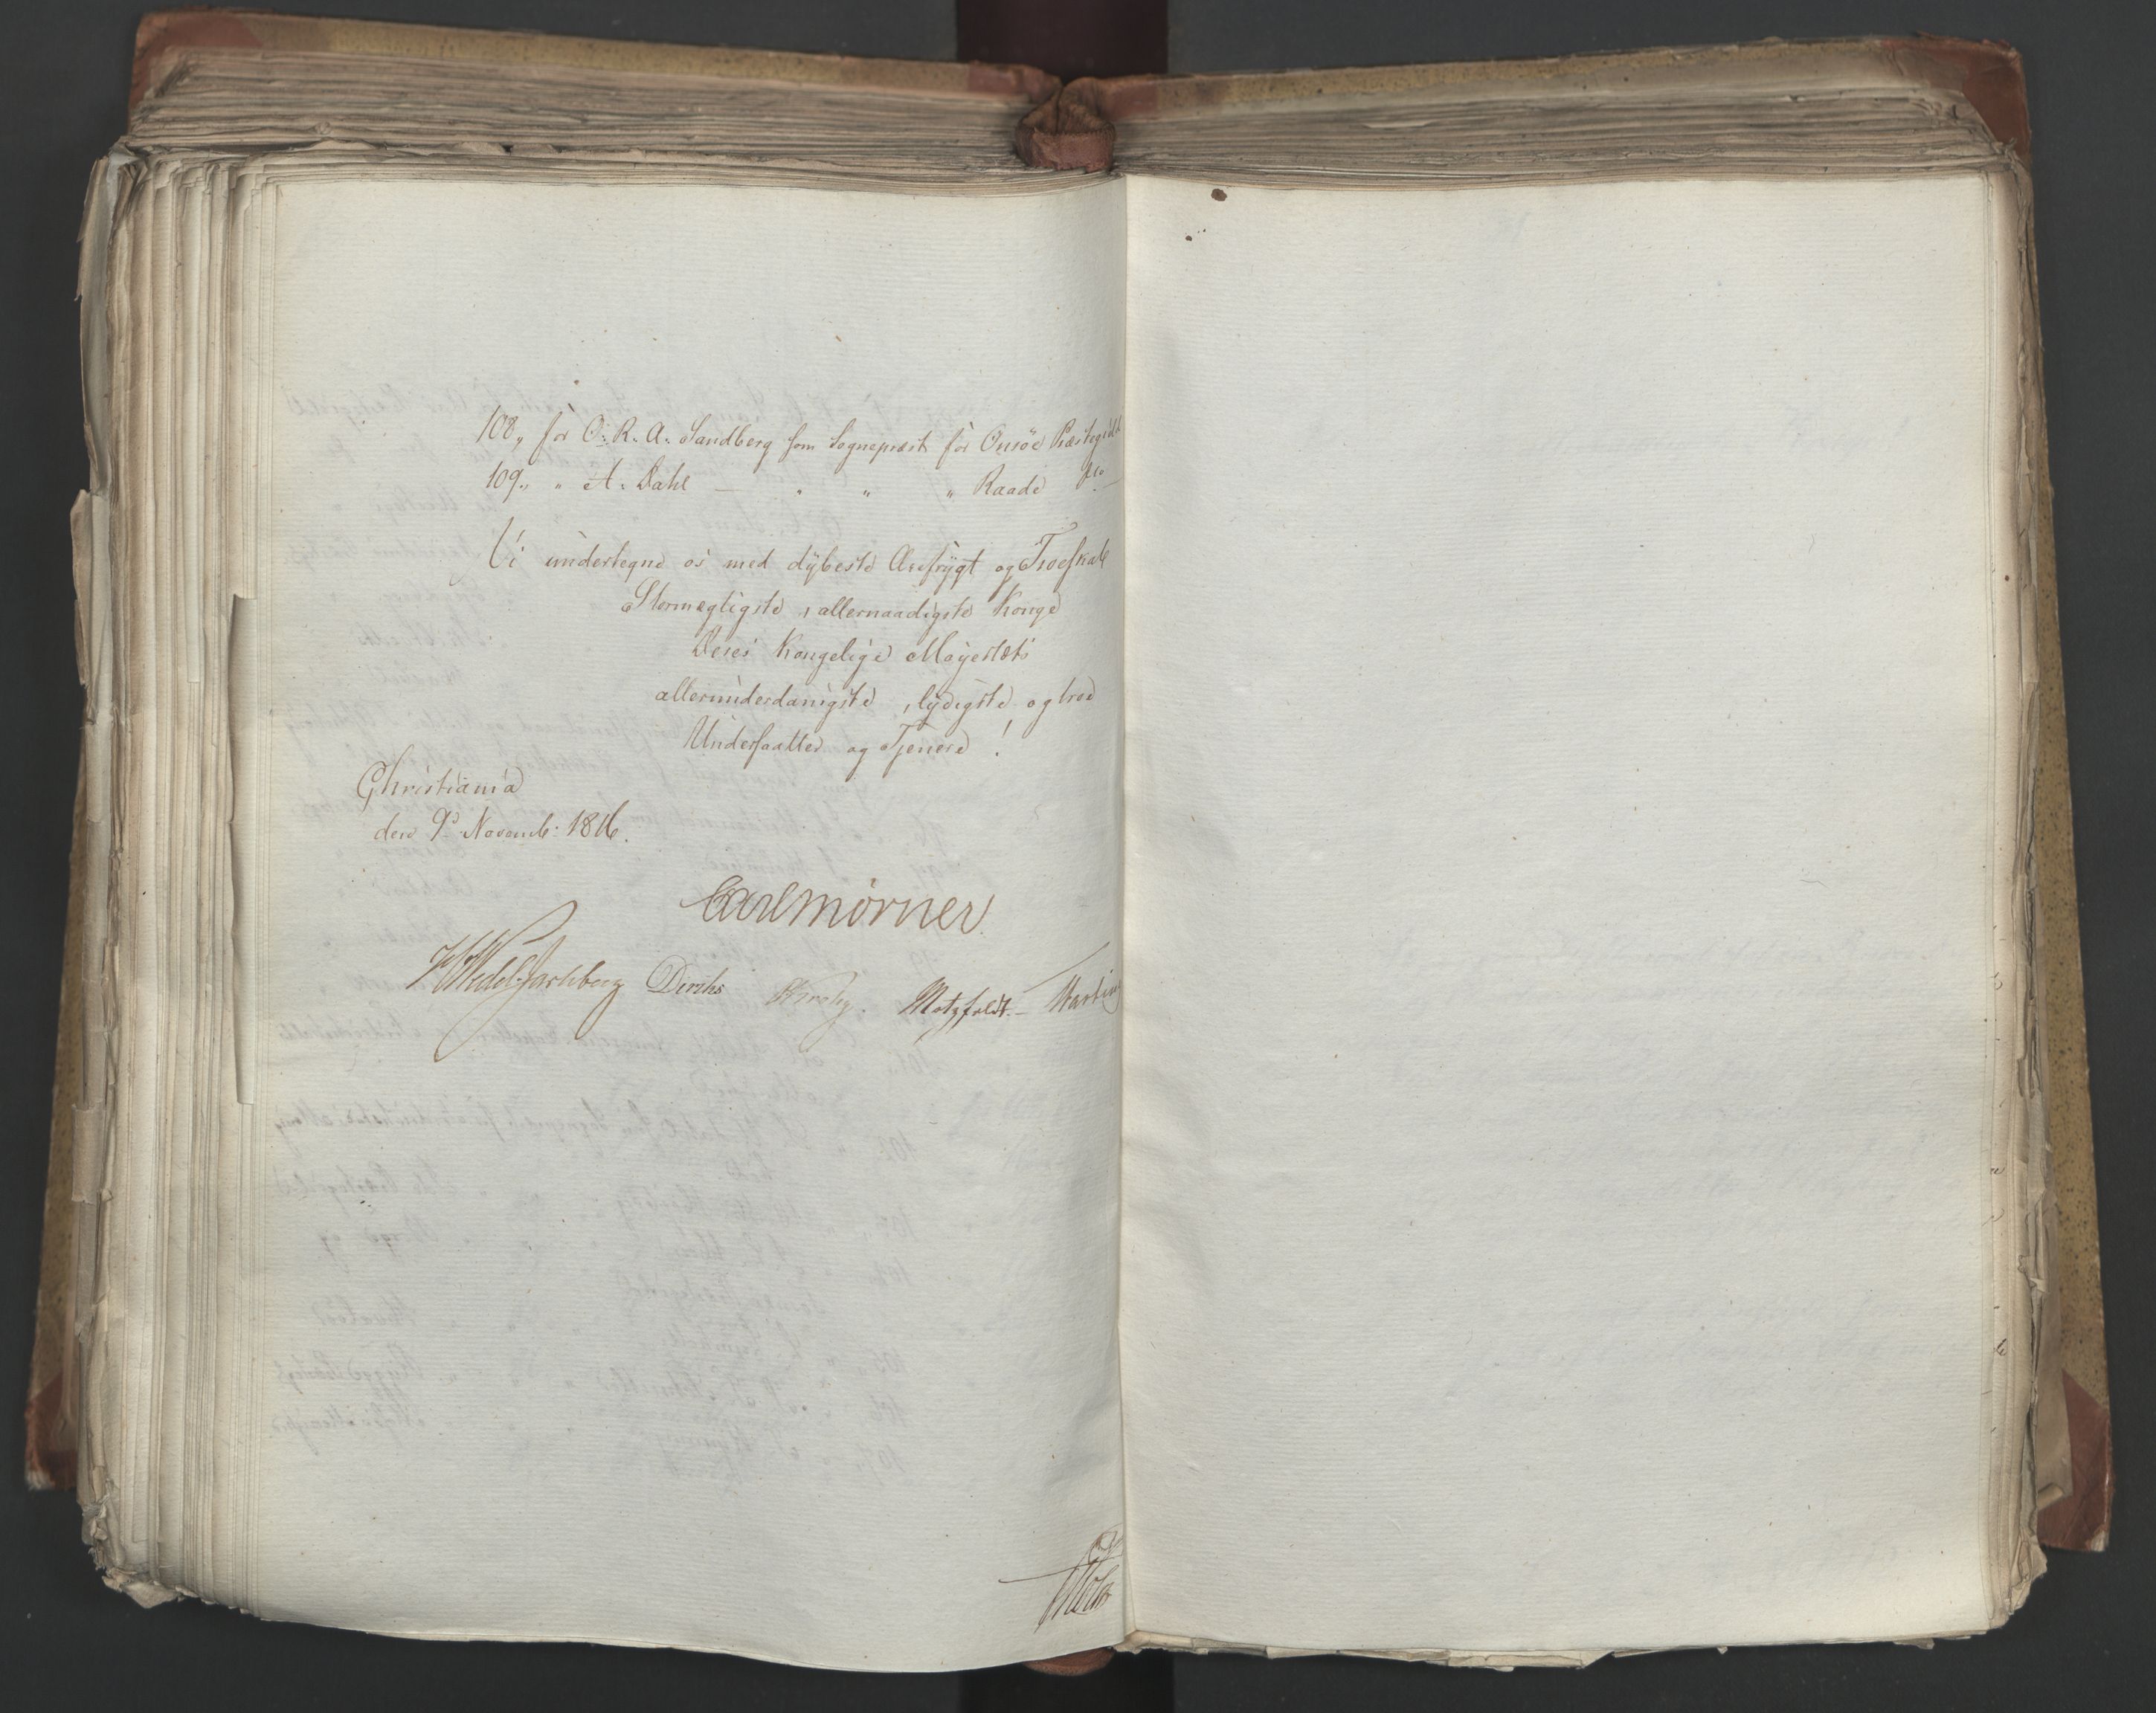 108„ for O: R. A: Sandberg som Sognepræst for Onsöe Præstegield
109„ „ A: Dahl — „ „ „ Raade do
Vi undertegne os med dÿbeste Ærefrÿgt og Troeskab
Stormægtigste, allernaadigste Konge
Deres Kongelige Mayestæts
allerunderdanigste, lÿdigste og troe
Undersaatter og Tjenere!
Christiania
den 9d Novemb: 1816.
Carl Mörner.
HWedel Jarlsberg Diriks Krohg. Motzfeldt. —
Holst